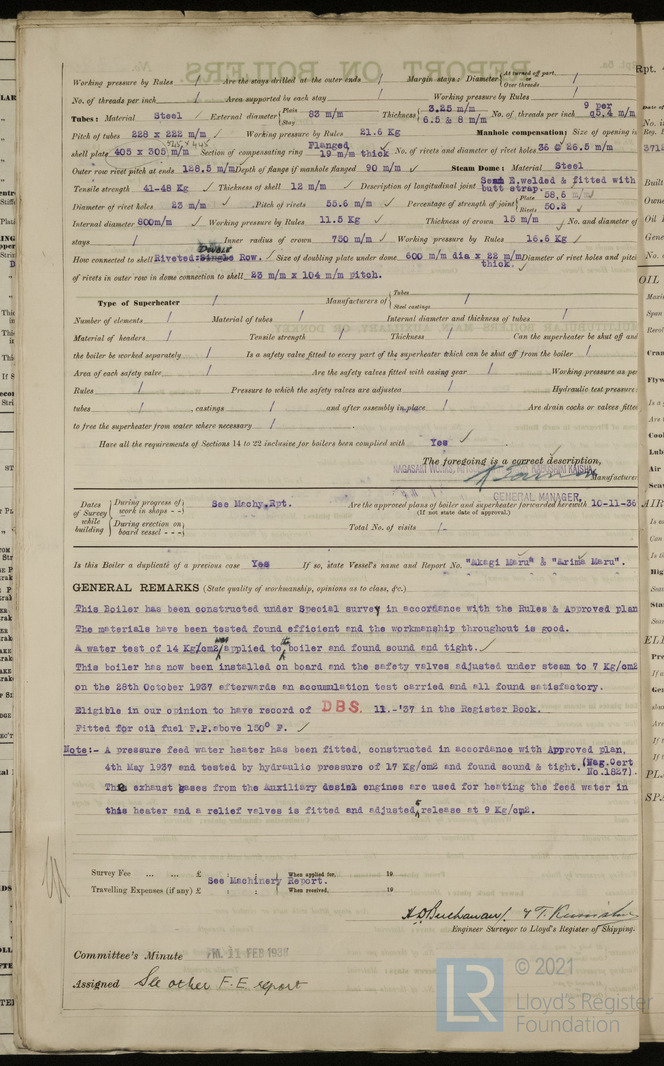 Working pressure by Rules / Are the stays drilled at the outer ends / Margin stays: Diameter { At turned off part, or Over threads
No. of threads per inch / Area supported by each stay / Working pressure by Rules /
Tubes: Material Steel External diameter { Plain Stay 83 m/m Thickness { 3.25 m/m 6.5 & 8 m/m No. of threads per inch 9 per
Pitch of tubes 228 x 222 m/m Working pressure by Rules 21.6 Kg Manhole compensation: Size of opening in
shell plate 405 x 305 m/m Section of compensating ring Flanged 19 m/m thick No. of rivets and diameter of rivet holes 36 @ 26.5 m/m
Outer row rivet pitch at ends 128.5 m/m Depth of flange if manhole flanged 90 m/m Steam Dome: Material Steel
Tensile strength 41-48 Kg Thickness of shell 12 m/m Description of longitudinal joint Seam E.welded & fitted with butt strap.
Diameter of rivet holes 23 m/m Pitch of rivets 55.6 m/m Percentage of strength of joint { Plate 58.6 Rivets 50.2
Internal diameter 800m/m Working pressure by Rules 11.5 Kg Thickness of crown 15 m/m No. and diameter of
stays / Inner radius of crown 750 m/m Working pressure by Rules 16.6 Kg
How connected to shell Riveted: Single Double Row. Size of doubling plate under dome 600 m/m dia x 22 m/m thick. Diameter of rivet holes and pitch
of rivets in outer row in dome connection to shell 23 m/m x 104 m/m pitch.
Type of Superheater / Manufacturers of { Tubes Steel castings /
Number of elements / Material of tubes / Internal diameter and thickness of tubes /
Material of headers / Tensile strength / Thickness / Can the superheater be shut off and
the boiler be worked separately / Is a safety valve fitted to every part of the superheater which can be shut off from the boiler /
Area of each safety valve / Are the safety valves fitted with easing gear / Working pressure as per
Rules / Pressure to which the safety valves are adjusted / Hydraulic test pressure:
tubes / , castings / and after assembly in place / Are drain cocks or valves fitted
to free the superheater from water where necessary /
Have all the requirements of Sections 14 to 22 inclusive for boilers been complied with Yes
The foregoing is a correct description,
Manufacturer
GENERAL MANAGER,
Dates of Survey while building { During progress of work in shops - - During erection on board vessel - - } See Machy.Rpt. Are the approved plans of boiler and superheater forwarded herewith 10-11-36
(If not state date of approval.)
Total No. of visits /-
Is this Boiler a duplicate of a previous case Yes If so, state Vessel's name and Report No. "Akagi Maru" & "Arima Maru".
GENERAL REMARKS (State quality of workmanship, opinions as to class, &c.)
This Boiler has been constructed under Special survey in accordance with the Rules & Approved plan
The materials have been tested found efficient and the workmanship throughout is good.
A water test of 14 Kg/cm2 was applied to the boiler and found sound and tight.
This boiler has now been installed on board and the safety valves adjusted under steam to 7 Kg/cm2
on the 28th October 1937 afterwards an accumulation test carried and all found satisfactory.
Eligible in our opinion to have record of DBS. 11.-'37 in the Register Book.
Fitted for oil fuel F.P. above 150° F.
Note:- A pressure feed water heater has been fitted, constructed in accordance with Approved plan,
4th May 1937 and tested by hydraulic pressure of 17 Kg/cm2 and found sound & tight. (Nag.Cert No.1827).
The exhaust gases from the Auxiliary engines are used for heating the feed water in
this heater and a relief valves is fitted and adjusted release at 9 Kg/cm2.
Survey Fee ... ... £ : : When applied for, 19
See Machinery Report.
Travelling Expenses (if any) £ : : When received, 19
A.D.Buchanan
Engineer Surveyor to Lloyd's Register of Shipping.
Committee's Minute FRI. 11 FEB 1938
Assigned See other F.E report
© 2021
LR
Lloyd's Register
Foundation